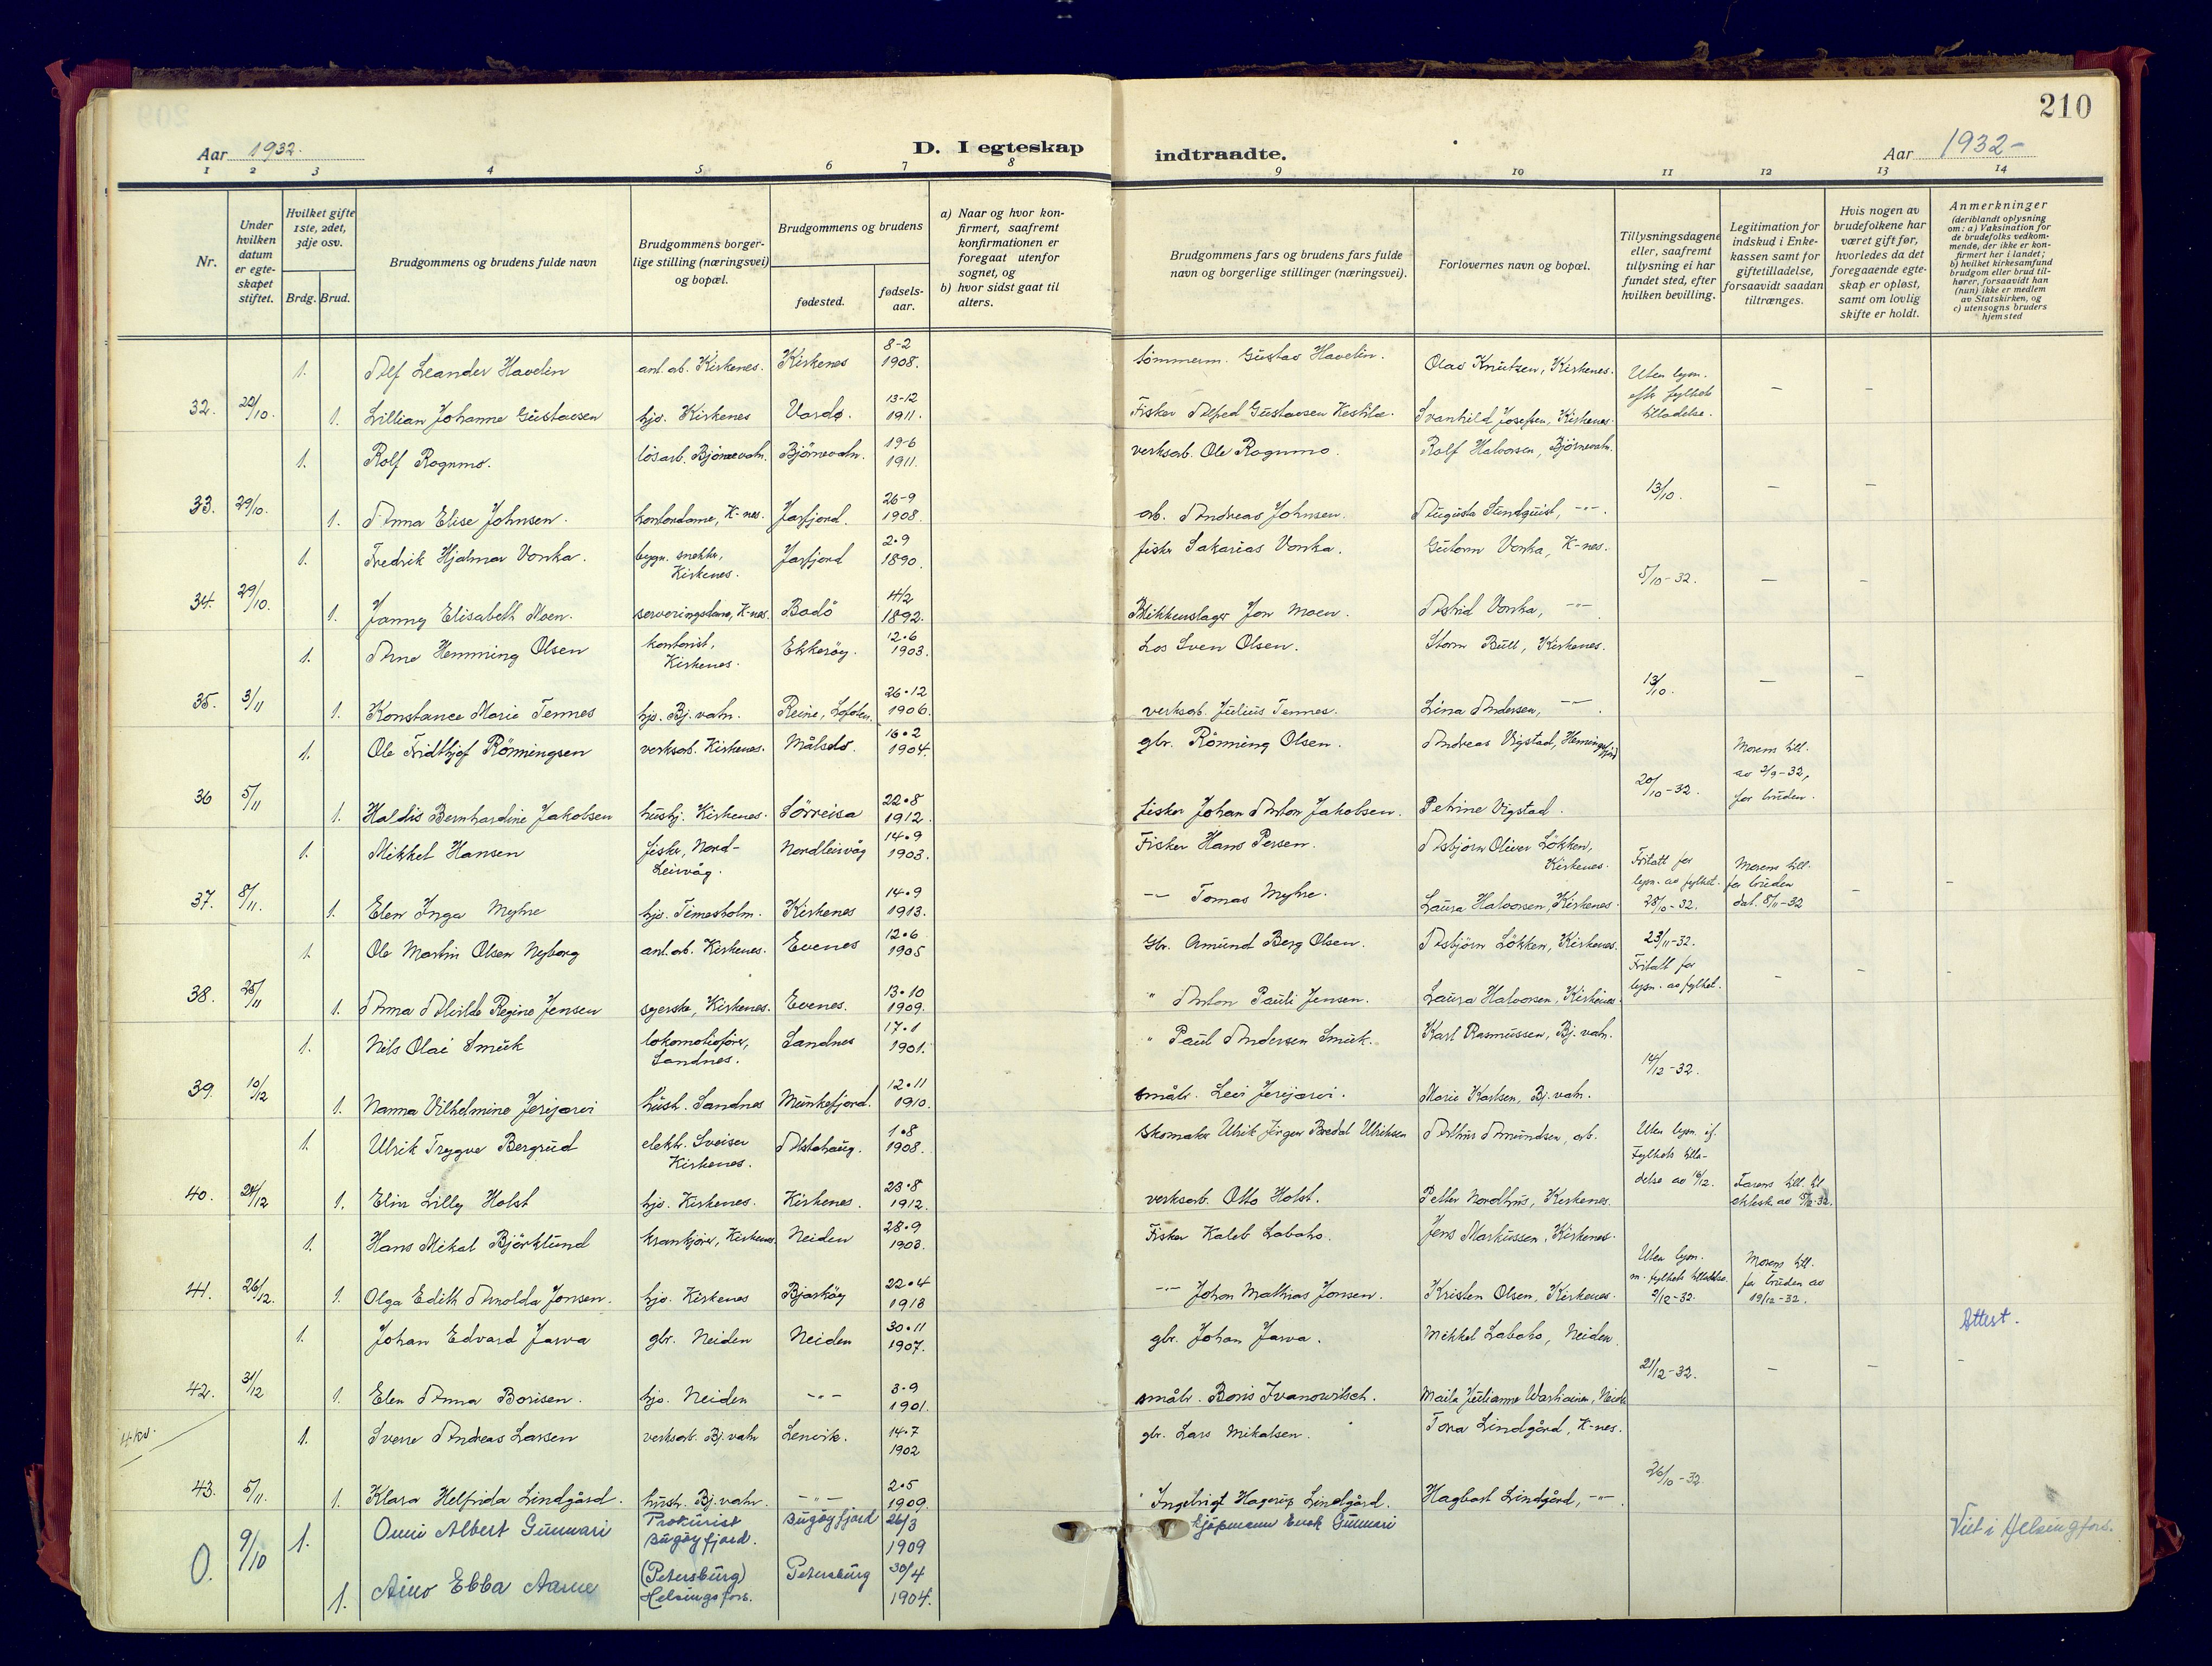 210
Aar 1932.
D. I egteskap
indtraadte.
Aar 1932-
1 2 3 4 5 6 7 8 9 10 11 12 13 14
Nr.
Under hvilken datum er egteskapet stiftet.
Hvilket gifte 1ste, 2det, 3dje osv.
Brdg. Brud.
Brudgommens og brudens fulde navn
Brudgommens borgerlige stilling (næringsvei) og bopæl.
Brudgommens og brudens
fødested.
fødselsaar.
a) Naar og hvor konfirmert, saafremt konfirmationen er foregaat utenfor sognet, og
b) hvor sidst gaat til alters.
Brudgommens fars og brudens fars fulde navn og borgerlige stillinger (næringsvei).
Forlovernes navn og bopæl.
Tillysningsdagene eller, saafremt tillysning ei har fundet sted, efter hvilken bevilling.
Legitimation for indskud i Enkekassen samt for giftetilladelse, forsaavidt saadan tiltrænges.
Hvis nogen av brudefolkene har været gift før, hvorledes da det foregaaende egteskap er opløst, samt om lovlig skifte er holdt.
Anmerkninger (deriblandt oplysning om: a) Vaksination for de brudefolks vedkommende, der ikke er konfirmert her i landet; b) hvilket kirkesamfund brudgom eller brud tilhører, forsaavidt han (hun) ikke er medlem av Statskirken, og c) utensogns bruders hjemsted
1. Alf Leander Havelin anl. arb. Kirkenes. Kirkenes 8-2 1908. tömmerm. Gustav Havelin. Olav Knutzen, Kirkenes. Uten lysn. eftr fylkets tilladelse. - -
32. 22/10. 1. Lillian Johanne Gustavsen hjv. Kirkenes Vardø. 13-12 1911. Fisker Alfred Gustavsen Kestila. Svanhild Josefsen, Kirkenes.
1. Rolf Rognmo. lösarb. Bjørnevatn. Björnevatn. 19-6 1911. verksarb. Ole Rognmo. Rolf Halvorsen, Bjørnevatn.
33. 29/10. 1. Anna Elise Johnsen. kontordame, K-nes. Jarfjord. 26-9 1908. arb. Andreas Johnsen. Augusta Sundquist, -"-. 13/10. - -
1. Fredrik Hjalmar Vonka. bygn. snekkr, Kirkenes. Jarfjord 2-9 1890. fiskr Sakarias Vonka. Gutorm Vonka, K-nes.
34. 29/10. 1. Janny Elisabeth Moen. serveringsdame, K-nes. Bodö 4/2 1892. Blikkenslager Jon Moen. Astrid Vonka, -"- 5/10-32. - -
1. Arne Hemming Olsen kontorist, Kirkenes. Ekkeröy. 12.6 1903. Los Sven Olsen. Storm Bull, Kirkenes.
35. 3/11 1. Konstance Marie Tennes hjv. Bj. vatn. Reine, Lofoten. 26.12 1906. verksarb. Julius Tennes. Lina Andersen, -"-. 13/10. - -
1. Ole Fridthjof Rönningsen verksarb. Kirkenes. Målselv. 16.2 1904. gbr. Rönning Olsen. Andreas Vigstad,
36 5/11 1. Haldis Bernhardine Jakobsen hushj. Kirkenes. Sörreisa 22.8 1912. fisker Johan Anton Jakobsen. Petrine Vigstad. 20/10-32. Morens till. av 2/9-32, for bruden.
1. Mikkel Hansen fiskr, Nord-Leirvåg. Nordleirvåg 14.9 1903. Fisker Hans Persen. Asbjörn Oliver Lökken, Kirkenes.
37. 8/11. 1. Elen Inga Myhre hjv. Timesholm. Kirkenes 14.9 1913. -"- Tomas Myhre. Laura Halvorsen, Kirkenes. Fritatt for lysn. av fylket. 28/10-32. Morens till. for bruden dat. 8/11-32 - -
1. Ole Martin Olsen Nyborg anl. arb. Kirkenes. Evenes 12.6 1905 Gbr. Amund Berg Olsen. Asbjörn Lökken, Kirkenes. 23/11-32.
38. 25/11 1. Anna Alvilde Regine Jensen syerske, Kirkenes. Evenes. 13.10 1909. " Anton Pauli Jensen. Laura Halvorsen, Kirkenes. Fritatt for lysn. av fylket. - - -
1. Nils Olai Smuk lokomotivförer, Sandnes. Sandnes 17.1 1901. " Paul Andersen Smuk. Karl Rasmussen, Bj. vatn.
39. 10/12 1. Nanna Vilhelmine Jerijærvi hush. Sandnes Munkefjord. 12.11 1910. småbr. Levi Jerijærvi. Marie Karlsen, Bj. vatn. 14/12-32.
1. Ulrik Trygve Bergrud elektr. Sveiser Kirkenes. Alstahaug. 1.8 1908. Skomaker Ulrik Jörgen Bredal Ulriksen Arthur Amundsen, arb.
40. 24/12 1. Elin Lilly Holst hjv. Kirkenes. Kirkenes. 23.8 1912. verksarb. Otto Holst. Petter Nordhus, Kirkenes. Uten lysn. if. Fylkets tilladelse av 16/12. Farens till. til
1. Hans Mikal Björklund krankjörer, Kirkenes. Neiden 28.9 1903. Fisker Kaleb Labaho. Jens Markussen, Kirkenes.
41. 26/12. 1. Olga Edith Arnolda Jonsen. hjv. Kirkenes Bjarköy 22.4 1913 -"- Johan Mathias Jonsen. Kristen Olsen, Kirkenes. Uten lysn. m. fylkets tilladelse. 9/12-32. Morens till. for bruden av 19/12-32.
1. Johan Edvard Jarva gbr. Neiden Neiden 30.11 1907. gbr. Johan Jarva. Mikkel Labaho, Neiden Attest.
42. 31/12 1. Elen Anna Borisen. hjv. Neiden -"- 3.9 1901. småbr. Boris Ivanowitsch. Maila Julianne Warhainen, Neiden 21/12-32. - - -
4 kv.
1. Sverre Andreas Larsen verksarb. Bj. vatn Lenvik. 14.7 1902 gbr. Lars Mikalsen. Tora Lindgård, K-nes.
43. 5/11. 1. Klara Helfrida Lindgård. hush. Bj. vatn. -"- 2.5 1909. " Ingebrigt Hagerup Lindgård. Hagbart Lindgård, -"-. 26/10-32.
0. 9/10 1. Onni Albert Gunnari Prokurist Bugöyfjord. Bugöyfjord 26/3 1909 kjöpmann Enok Gunnari Viet i Helsingfors.
1. Aino Ebba Aarne (Petersburg) Helsingfors. Petersburg 30/4 1904.